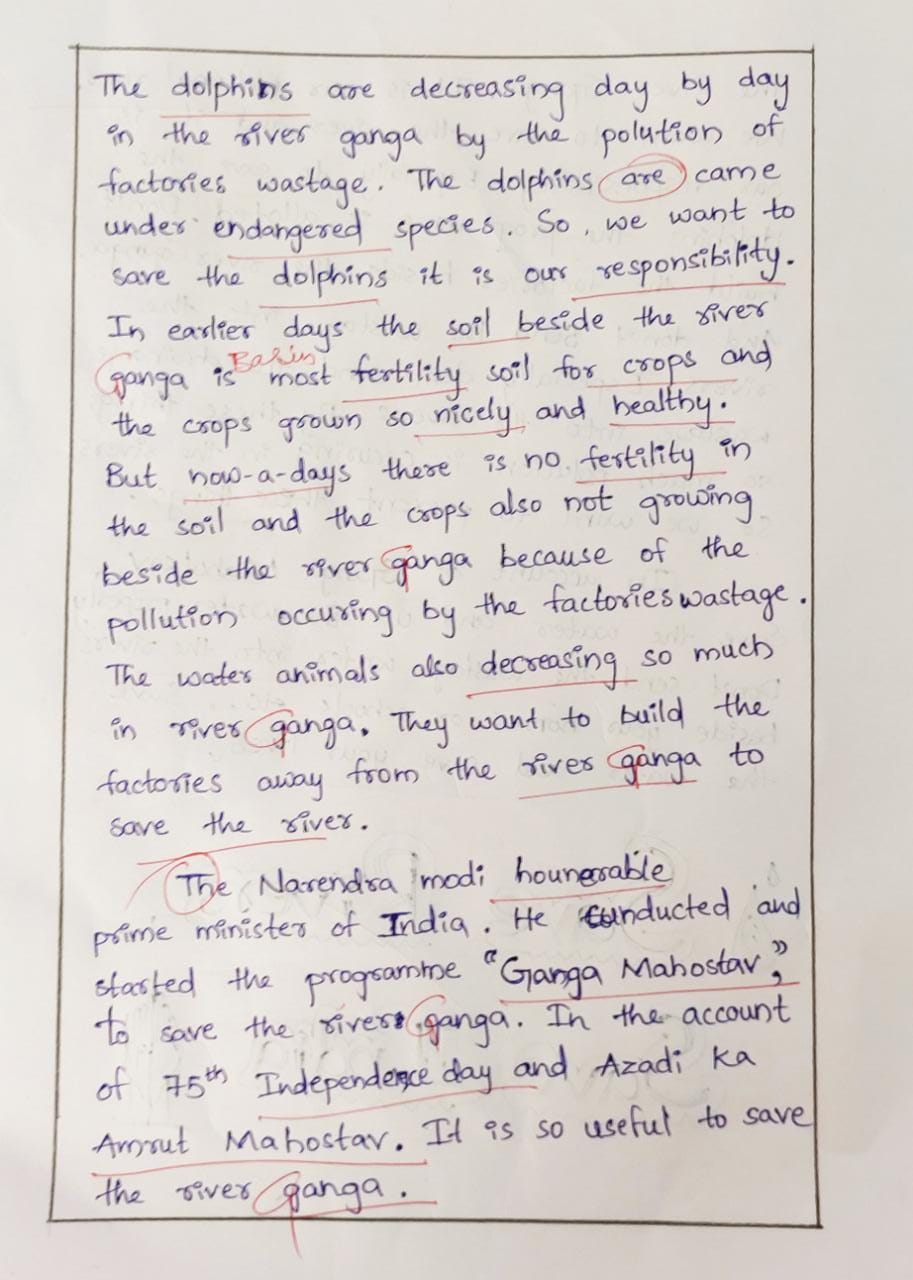 The dolphins are decreasing day by day
in the river ganga by the polution of
factories wastage. The dolphins are came
under endangered species. So, we want to
save the dolphins it is our responsibility.
In earlier days the soil beside the river
Basin
Ganga is most fertility soil for crops and
the crops grown so nicely and healthy.
But now-a-days there is no fertility in
the soil and the crops also not growing
beside the river Ganga because of the
pollution occuring by the factories wastage.
The water animals also decreasing so much
in river Ganga. They want to build the
factories away from the river Ganga to
save the river.
The Narendra modi hounerable
prime minister of India. He conducted and
started the programme "Ganga Mahostav",
to save the river Ganga. In the account
of 75th Independence day and Azadi Ka
Amrut Mahostav. It is so useful to save
the river Ganga.